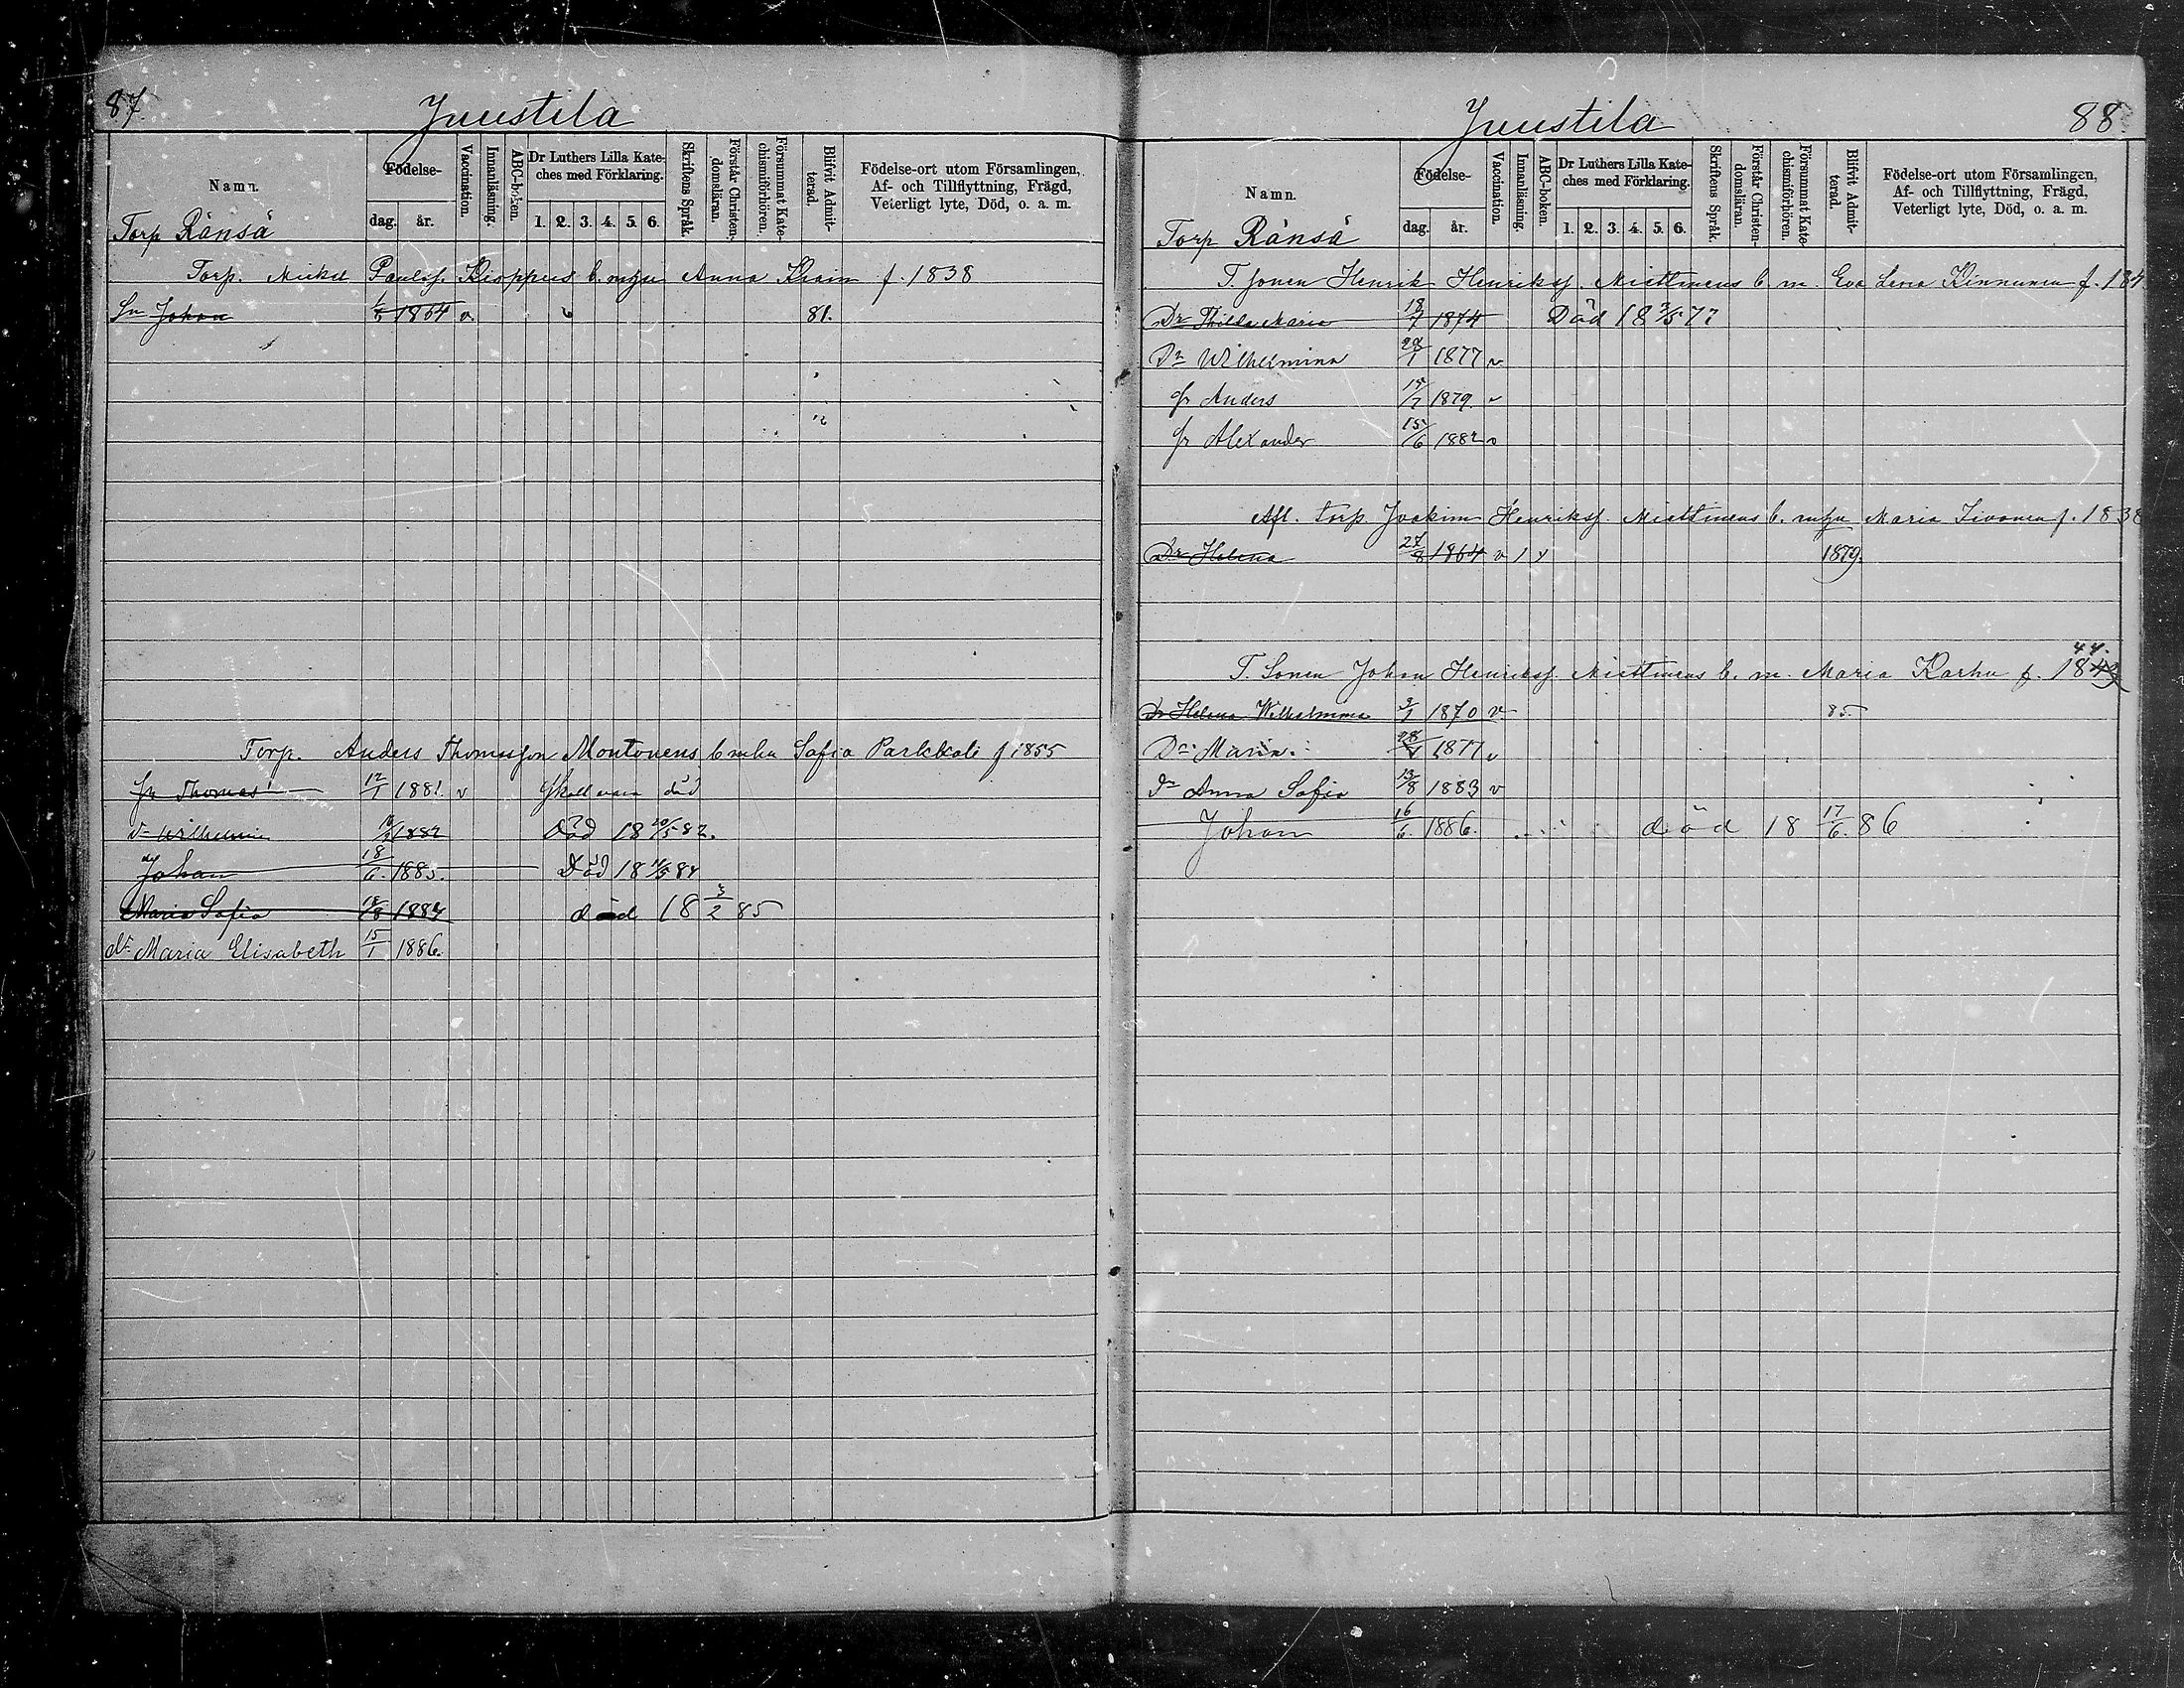 87
Juustila
Namn.
Födelse-
dag.
år.
Vaccination.
Innanläsning.
ABC-boken.
Dr Luthers Lilla Kate-
ches med Förklaring.
1. 2. 3. 4. 5. 6.
Skriftens Språk.
Förstår Christen-
domsläran.
Försummat Kate-
chismiförhören.
Blifvit Admit-
terad.
Födelse-ort utom Församlingen,
Af- och Tillflyttning, Frägd,
Veterligt lyte, Död, o. a. m.
Torp Ränsä
Torp. Mickel Paulss. b. Anna f. 1838
Sn Johan 1864 v. 81.
Torp. Anders Thomasson Montonens b Sofia Parkkali f 1855
Sn Thomas 12/1 1881. v Skall vara död
Dr Wilhelmin 1882 Död 18 82.
Johan 18/6. 1883. Död 18 84
Maria Sofia 18/8 1884 död 18 3/2 85
Dr Maria Elisabeth 15/1 1886.
88
Juustila
Namn.
Födelse-
dag.
år.
Vaccination.
Innanläsning.
ABC-boken.
Dr Luthers Lilla Kate-
ches med Förklaring.
1. 2. 3. 4. 5. 6.
Skriftens Språk.
Förstår Christen-
domsläran.
Försummat Kate-
chismiförhören.
Blifvit Admit-
terad.
Födelse-ort utom Församlingen,
Af- och Tillflyttning, Frägd,
Veterligt lyte, Död, o. a. m.
Torp Ränsä
T. Sonen Henrik Henrikss. Miettinens b. m. Eva Lena Kinnunen f. 184
Dr Thilda Maria 18/7 1874 Död 18 2/5 77
Dr Wilhelmina 28/1 1877 v
Sn Anders 15/7 1879. v
Sn Alexander 15/6 1882 v
Afl. Torp. Joakim Henrikss. Miettinens b. Maria Sivonen f. 1838
Dr Helena 27/8 1864 v 1879.
44.
T. Sonen Johan Henrikss. Miettinens b. m. Maria Karhu f. 1843
Dr Helena Wilhelmina 3/1 1870 v 85.
Dr Maria 1877 v
Dr Anna Sofia 13/8 1883 v
Johan 16/6. 1886. död 18 17/6. 86